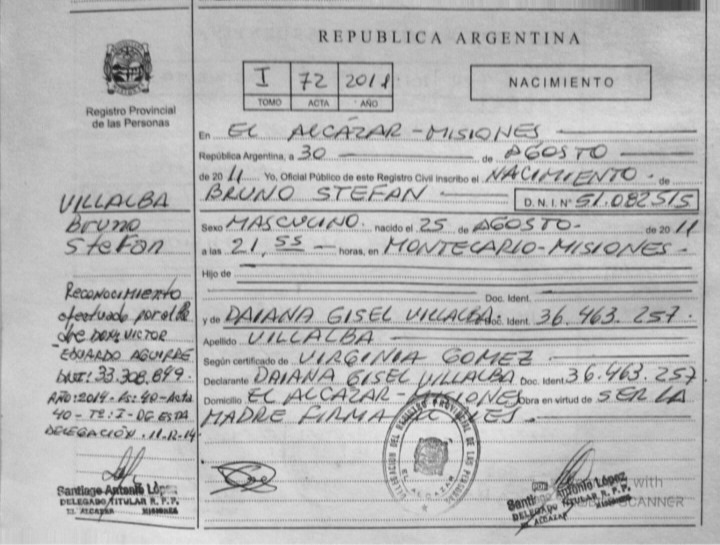 REPUBLICA ARGENTINA
Registro Provincial
de las Personas
I 72 2011
TOMO ACTA AÑO
NACIMIENTO
En EL ALCAZAR - MISIONES
República Argentina, a 30 de AGOSTO
de 2011 Yo, Oficial Público de este Registro Civil inscribo el NACIMIENTO - de
BRUNO STEFAN D.N.I. Nº 51.082.515
Sexo MASCULINO. nacido el 25 de AGOSTO - de 2011
a las 21,55 - horas, en MONTECARLO - MISIONES -
Hijo de
Doc. Ident.
y de DAIANA GISEL VILLALBA. Doc. Ident. 36.463.257-
Apellido VILLALBA
Según certificado de VIRGINIA GOMEZ
Declarante DAIANA GISEL VILLALBA Doc. Ident. 36.463.257
Domicilio EL ALCAZAR - MISIONES Obra en virtud de SER LA
MADRE FIRMA
VILLALBA
Bruno
Stefan
RECONOCIMIENTO
efectuado por el
DON VICTOR
EDUARDO AGUIRRE
DNI: 33.308.899.
AÑO: 2014 - Fs: 40 - Acta
40 - Tº: I - DE ESTA
DELEGACIÓN. 11-12-14
Santiago Antonio López
DELEGADO TITULAR R.P.P.
EL ALCAZAR MISIONES
DELEGACION DEL REGISTRO PROVINCIAL DE LAS PERSONAS
EL ALCAZAR
Santiago Antonio López
DELEGADO TITULAR R.P.P.
EL ALCAZAR
with
SCANNER